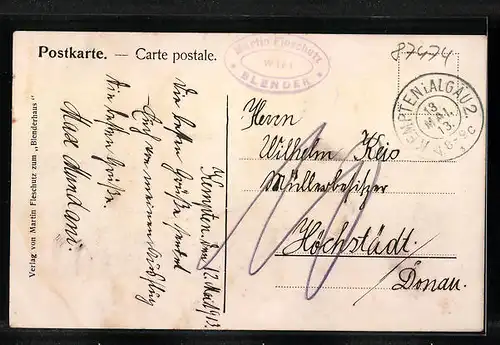 Postkarte. — Carte postale.
Martin Fleschutz
Wirt
* BLENDER *
87474
KEMPTEN i ALGÄU 2
13
MAI.
13.
Verlag von Martin Fleschutz zum „Blenderhaus"
Kempten, den 12. Mai 1913.
Die besten Grüße sendet
Euch von meinem Ausflug
Die besten Grüße.
Max
Herrn
Wilhelm
Müllerbesitzer
Höchstädt/
Donau.